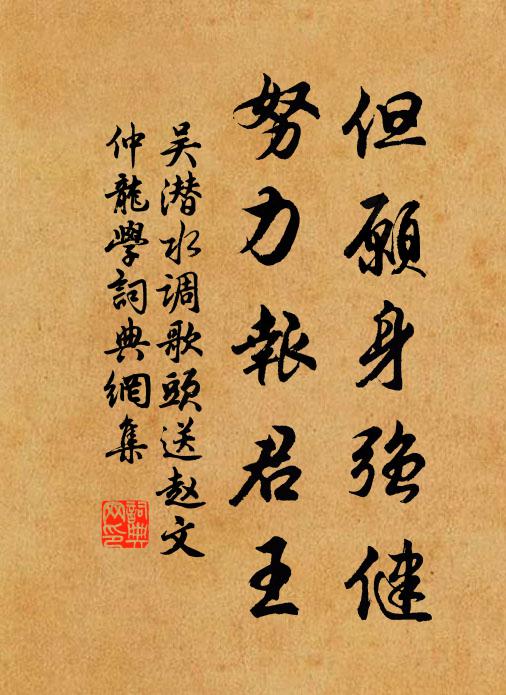 但願身強健
努力報君王
吴潜水调歌頭送赵文
仲龍學詞典網集
詞典网印